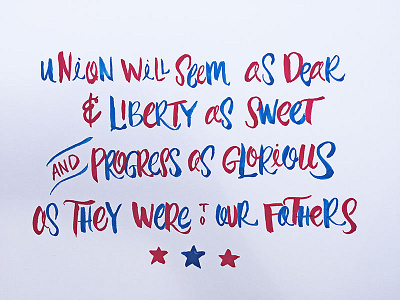 UNiON WiLL SEEM AS DEAR
& LIBERTY AS SWEET
AND PROGRESS AS GLORIOUS
AS THEY WERE TO OUR FATHERS